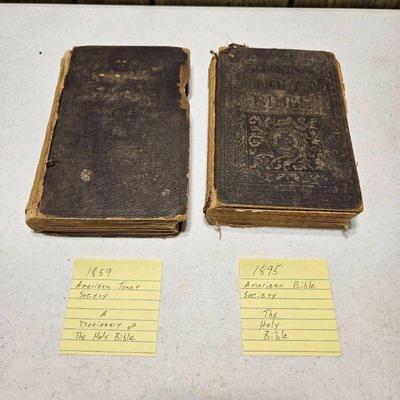 HOLY
BIBLE
1859
American Tract
Society
A
Dictionary of
The Holy Bible
1895
American Bible
Society
The
Holy
Bible